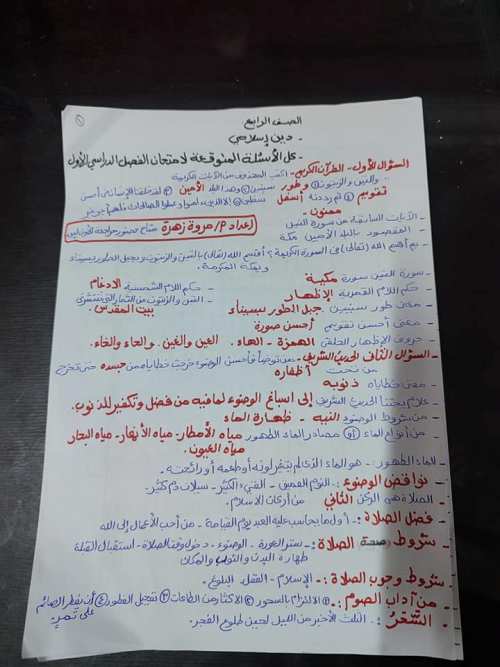 الصف الرابع
- دين إسلامي -
- كل الأسئلة المتوقعة لامتحان الفصل الدراسي الأول
السؤال الأول - القرآن الكريم - اكتب المحذوف من الآيات الكريمة
والتين والزيتون ① وطور سينين ② وهذا البلد الأمين ③ لقد خلقنا الإنسان في أحسن
تقويم ④ ثم رددناه أسفل سافلين ⑤ إلا الذين آمنوا وعملوا الصالحات فلهم أجر غير
ممنون
إعداد م/ مروة زهرة
- الآيات السابقة من سورة التين
- المقصود بالبلد الأمين مكة
- بم أقسم الله (تعالى) في السورة الكريمة؟ أقسم الله (تعالى) بالتين والزيتون وبجبل الطور بسيناء
وبمكة المكرمة.
- سورة التين سورة مكية - حكم اللام الشمسية الإدغام
- حكم اللام القمرية الإظهار - التين والزيتون من الثمار التي تنتشر في
- معنى طور سينين: جبل الطور بسيناء بيت المقدس.
- معنى أحسن تقويم أحسن صورة
- حروف الإظهار الحلقي الهمزة - الهاء. العين والغين. والحاء والخاء.
- السؤال الثاني الحديث الشريف - من توضأ فأحسن الوضوء خرجت خطاياه من جسده حتى تخرج
من تحت أظفاره
- معنى خطاياه ذنوبه
- علام يحثنا الحديث الشريف إلى إسباغ الوضوء لما فيه من فضل وتكفير للذنوب.
- من شروط الوضوء النية - طهارة الماء
- من أنواع الماء مصادر الماء الطهور مياه الأمطار - مياه الأنهار - مياه البحار
مياه العيون.
- الماء الطهور: - هو الماء الذي لم يتغير لونه أو طعمه أو رائحته.
- نواقض الوضوء: - النوم العميق - القيء الكثير - سيلان دم كثير.
- الصلاة هي الركن الثاني من أركان الإسلام.
- فضل الصلاة: أول ما يحاسب عليه العبد يوم القيامة - من أحب الأعمال إلى الله
- شروط صحة الصلاة: - ستر العورة - الوضوء - دخول وقت الصلاة - استقبال القبلة
طهارة البدن والثوب والمكان
- شروط وجوب الصلاة: - الإسلام - العقل البلوغ.
- من آداب الصوم: - ① الالتزام بالسحور ② الإكثار من الطاعات ③ تعجيل الفطور ④ أن يفطر الصائم
على تمر
- السَّحَر: الثلث الأخير من الليل لحين طلوع الفجر.